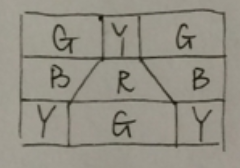 G Y G
B R B
Y G Y